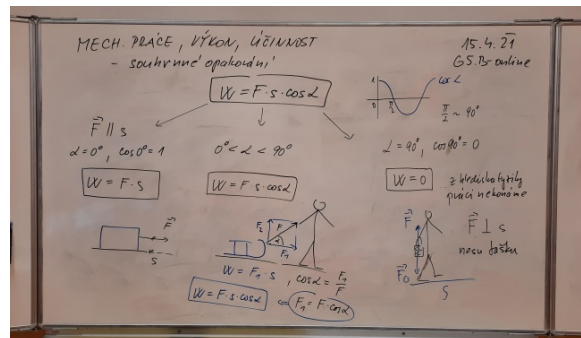 MECH. PRÁCE, VÝKON, ÚČINNOST
- souhrnné opakování
15.4.21
G5.Br online
W = F·s·cosα
1
0
π/2
cos α
π/2 ~ 90°
F⃗ ∥ s
α = 0°, cos0° = 1
W = F·s
F⃗
s
0° < α < 90°
W = F·s·cosα
F₂
F
α
F₁
W = F₁·s, cosα = F₁/F
W = F·s·cosα ⇐ F₁ = F·cosα
α = 90°, cos90° = 0
W = 0
z hlediska fyziky
práci nekonáme
F⃗
F⃗G
s
F⃗ ⊥ s
nesu tašku